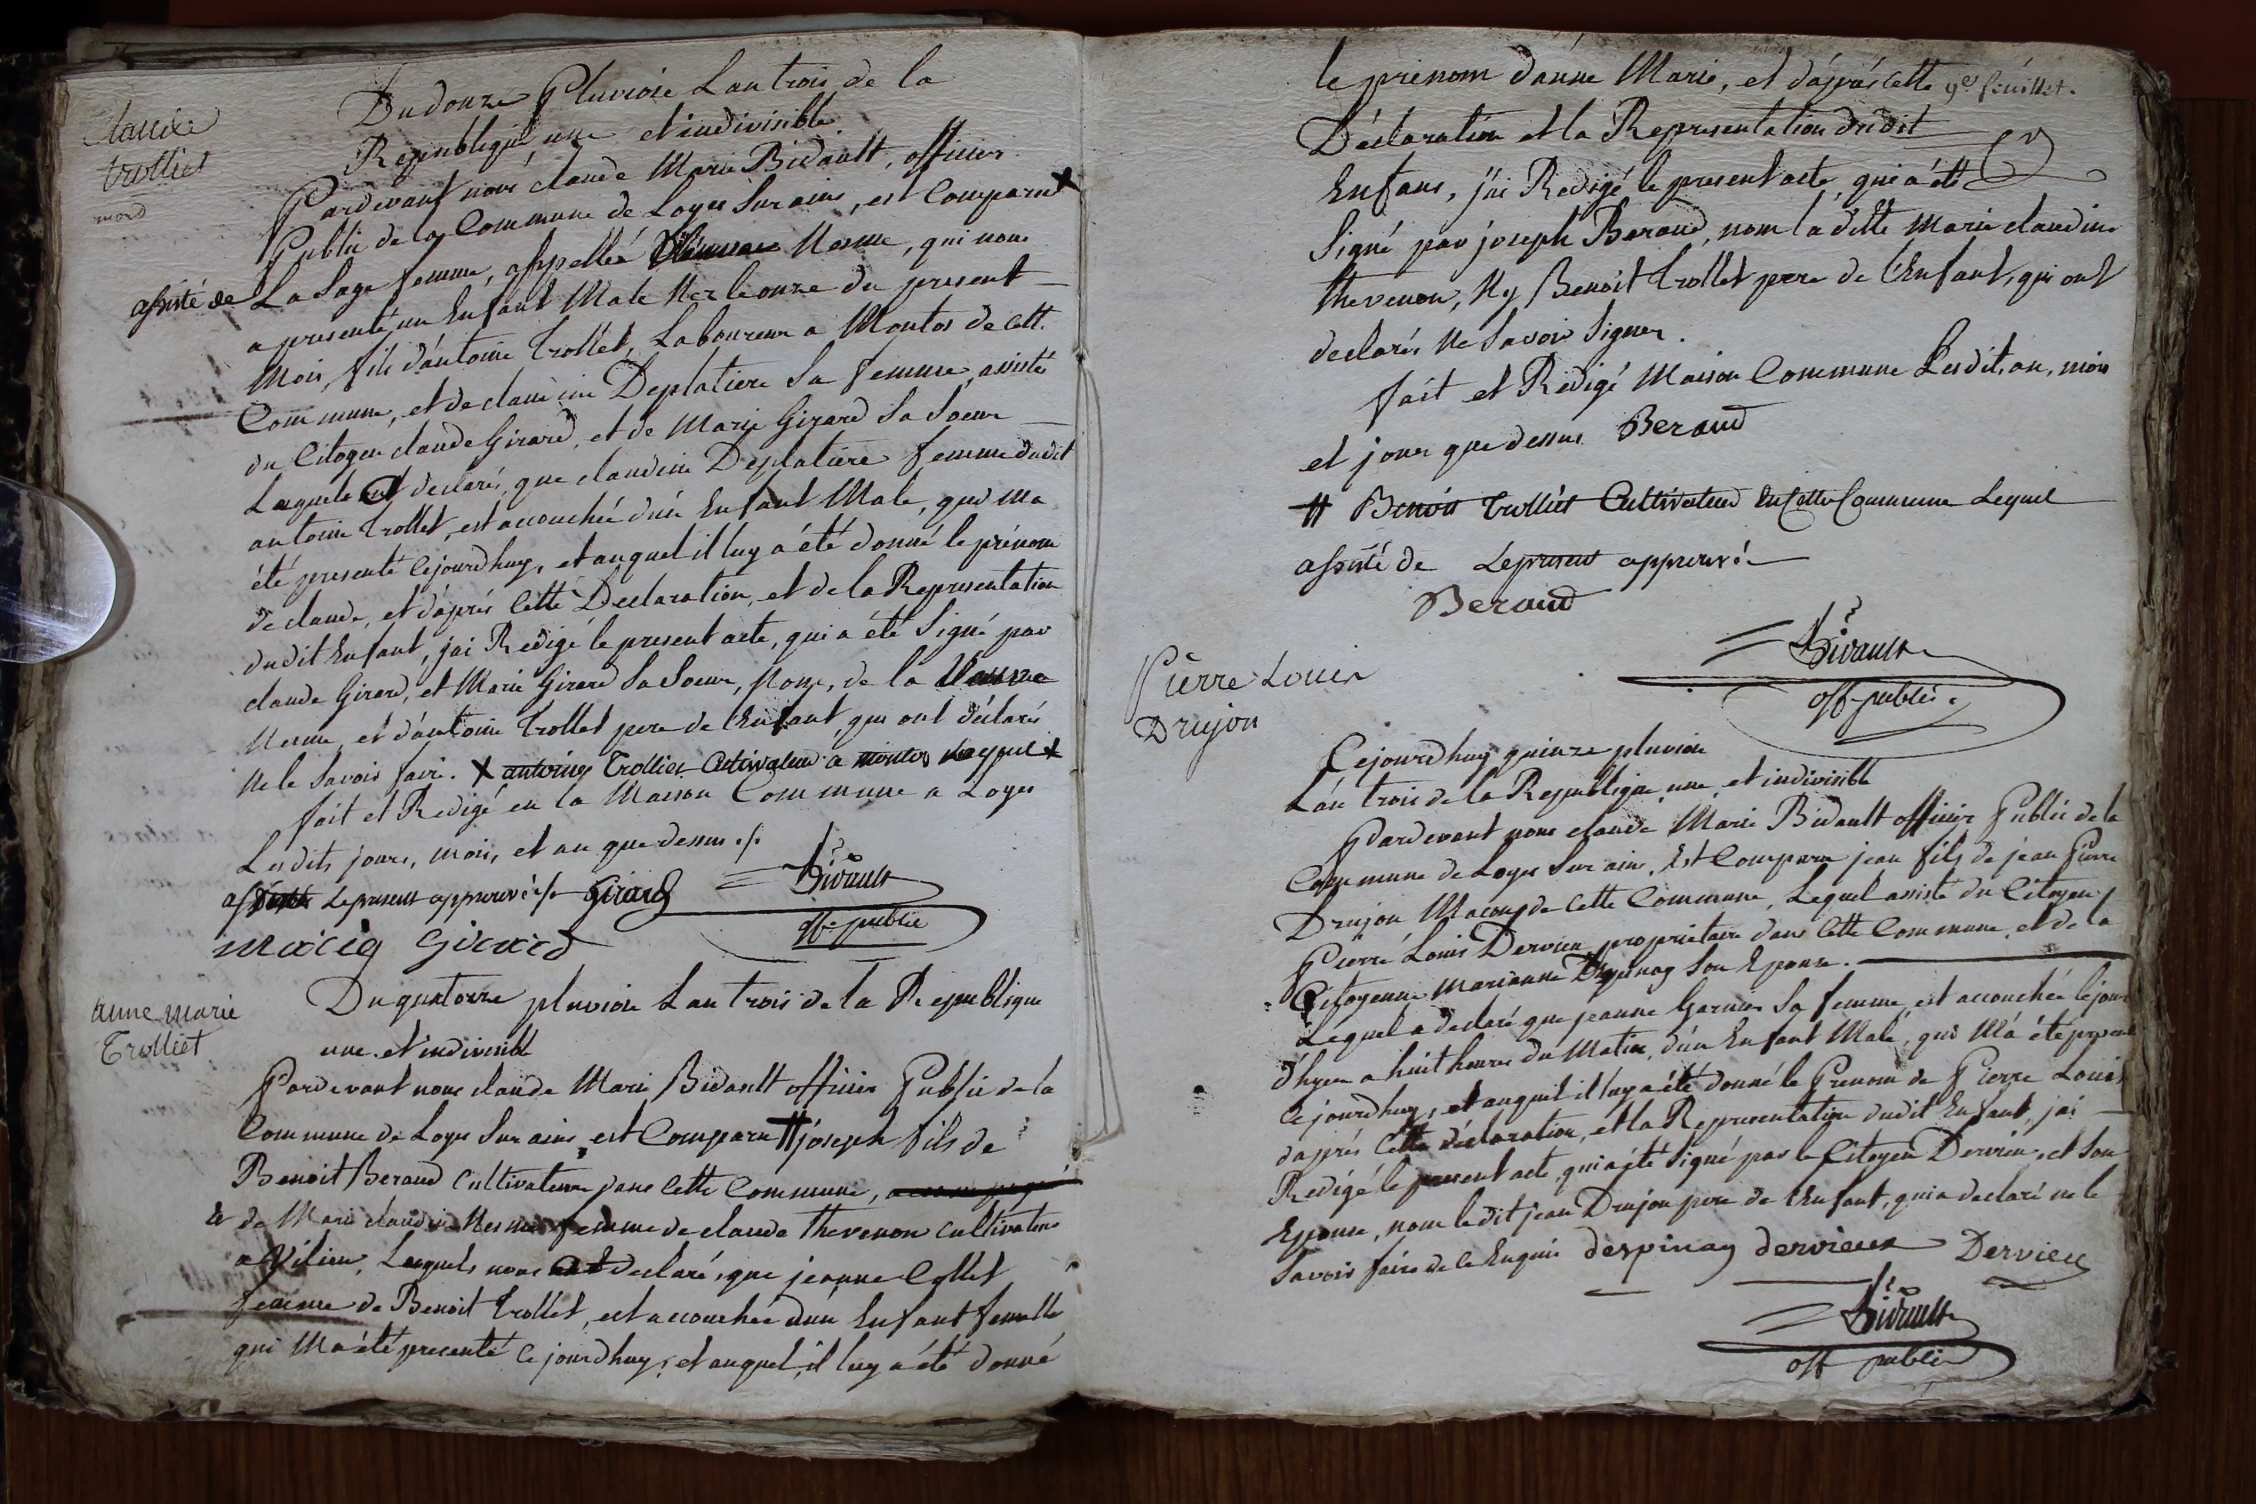 Claude
trolliet
mord
Du douze Pluviose L'an trois de la
Republique une et indivisible.
Pardevant nous claude Marie Bidault, officier
Public de la Commune de Loyes Sur ains, est Comparu X
assisté de La Sage femme, appellée Nesme, qui nous
a presenté un Enfant Male Nez le onze du present
Mois, fils d'antoine trollet, Laboureur a Montos de cette
Commune, et de claudine Deplatiere Sa femme, assisté
du Citoyen claude Girard, et de Marie Girard Sa Soeur
Laquele declaré, que claudine Deplatiere femme dudit
antoine trollet, est accouchée d'un Enfant Male, qui ma
été presenté Cejourdhuy, et auquel il luy a été donné le prénom
de claude, et d'aprés Cette Declaration, et de la Representation
dudit Enfant, jai Redigé le present acte, qui a été Signé par
claude Girard, et Marie Girard Sa Soeur, Non, de la
Nesme, et d'antoine trollet pere de L'Enfant, qui ont déclaré
Ne le Savoir faire. X antoine Trolliet Cultivateur a montos Lequel X
fait et Redigé en la Maison Commune a Loyes
Lesdits jours, mois, et an que dessus ./.
Le present approuvé ./. Girard Bidault
off public
Marie Girard
anne marie
Trolliet
Du quatorze pluviose L'an trois de la Republique
une et indivisible
Pardevant nous claude Marie Bidault officier Public de la
Commune de Loyes Sur ains, est Comparu # joseph fils de
Benoit Beraud Cultivateur dans Cette Commune,
& de Marie claudine Nesme femme de claude thevenon cultivateur
a Vilieu, Lesquels nous ont declaré, que jeanne Collet
femme de Benoit trollet, est accouchée d'un Enfant femelle
qui Ma été presenté Ce jourdhuy, et auquel, il luy a été donné
le prenom d'anne Marie, et d'aprés cette 9e feuillet.
Déclaration et la Representation dudit
Enfans, j'ai Redigé le present acte, qui a été
Signé par joseph Beraud, nom ladite Marie claudine
thevenon, Ny Benoit trollet pere de l'Enfant, qui ont
declarés Ne Savoir Signer.
fait et Redigé Maison Commune Lesdit, an, mois
et jour que dessus Beraud
# Benoit trolliet Cultivateur En Cette Commune Lequel
assisté de Le present approuvé
Beraud
Bidault
off public.
Pierre Louis
Drujon
Cejourdhuy quinze pluviose
L'an trois de la Republique, une, et indivisible
Pardevant nous claude Marie Bidault officier Public de la
Commune de Loyes Sur ains, Est Comparu jean fils de jean Pierre
Drujon Macon de Cette Commune, Lequel assisté du Citoyen
Pierre Louis Dervieu propriétaire dans Cette Commune, et de la
Citoyenne Marianne Despinay Son Epouse.
Lequel a declaré que jeanne Garnier Sa femme, est accouchée le jour
d'hyer a huit heures du Matin, d'un Enfant Male, qui M'a été presenté
Ce jourdhuy, et auquel il luy a été donné le Prenom de Pierre Louis
d'aprés Cette déclaration, et la Representation dudit Enfant, jai
Redigé le present acte, qui a été Signé par le Citoyen Dervieu, et Son
Epouse, nom ledit jean Drujon pere de l'Enfant, qui a declaré ne le
Savoir faire de ce Enquis despinay dervieux Dervieu
Bidault
off public